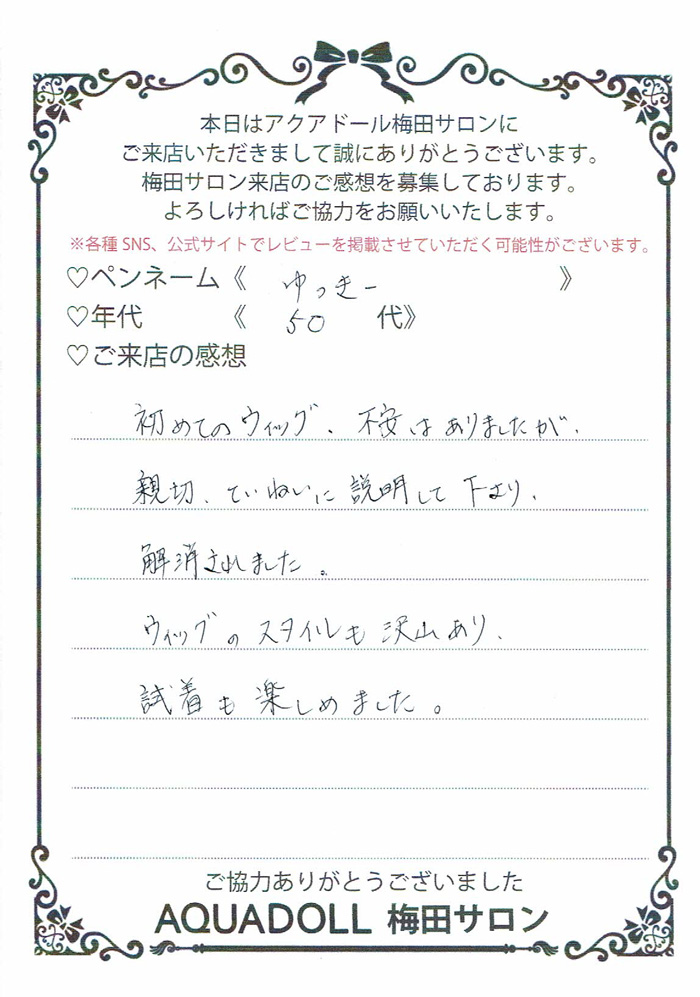 本日はアクアドール梅田サロンに
ご来店いただきまして誠にありがとうございます。
梅田サロン来店のご感想を募集しております。
よろしければご協力をお願いいたします。
※各種 SNS、公式サイトでレビューを掲載させていただく可能性がございます。
♡ペンネーム《 ゆっきー 》
♡年代 《 50 代》
♡ご来店の感想
初めてのウィッグ、不安はありましたが、
親切、ていねいに説明して下より、
解消されました。
ウィッグのスタイルも沢山あり、
試着も楽しめました。
ご協力ありがとうございました
AQUADOLL 梅田サロン